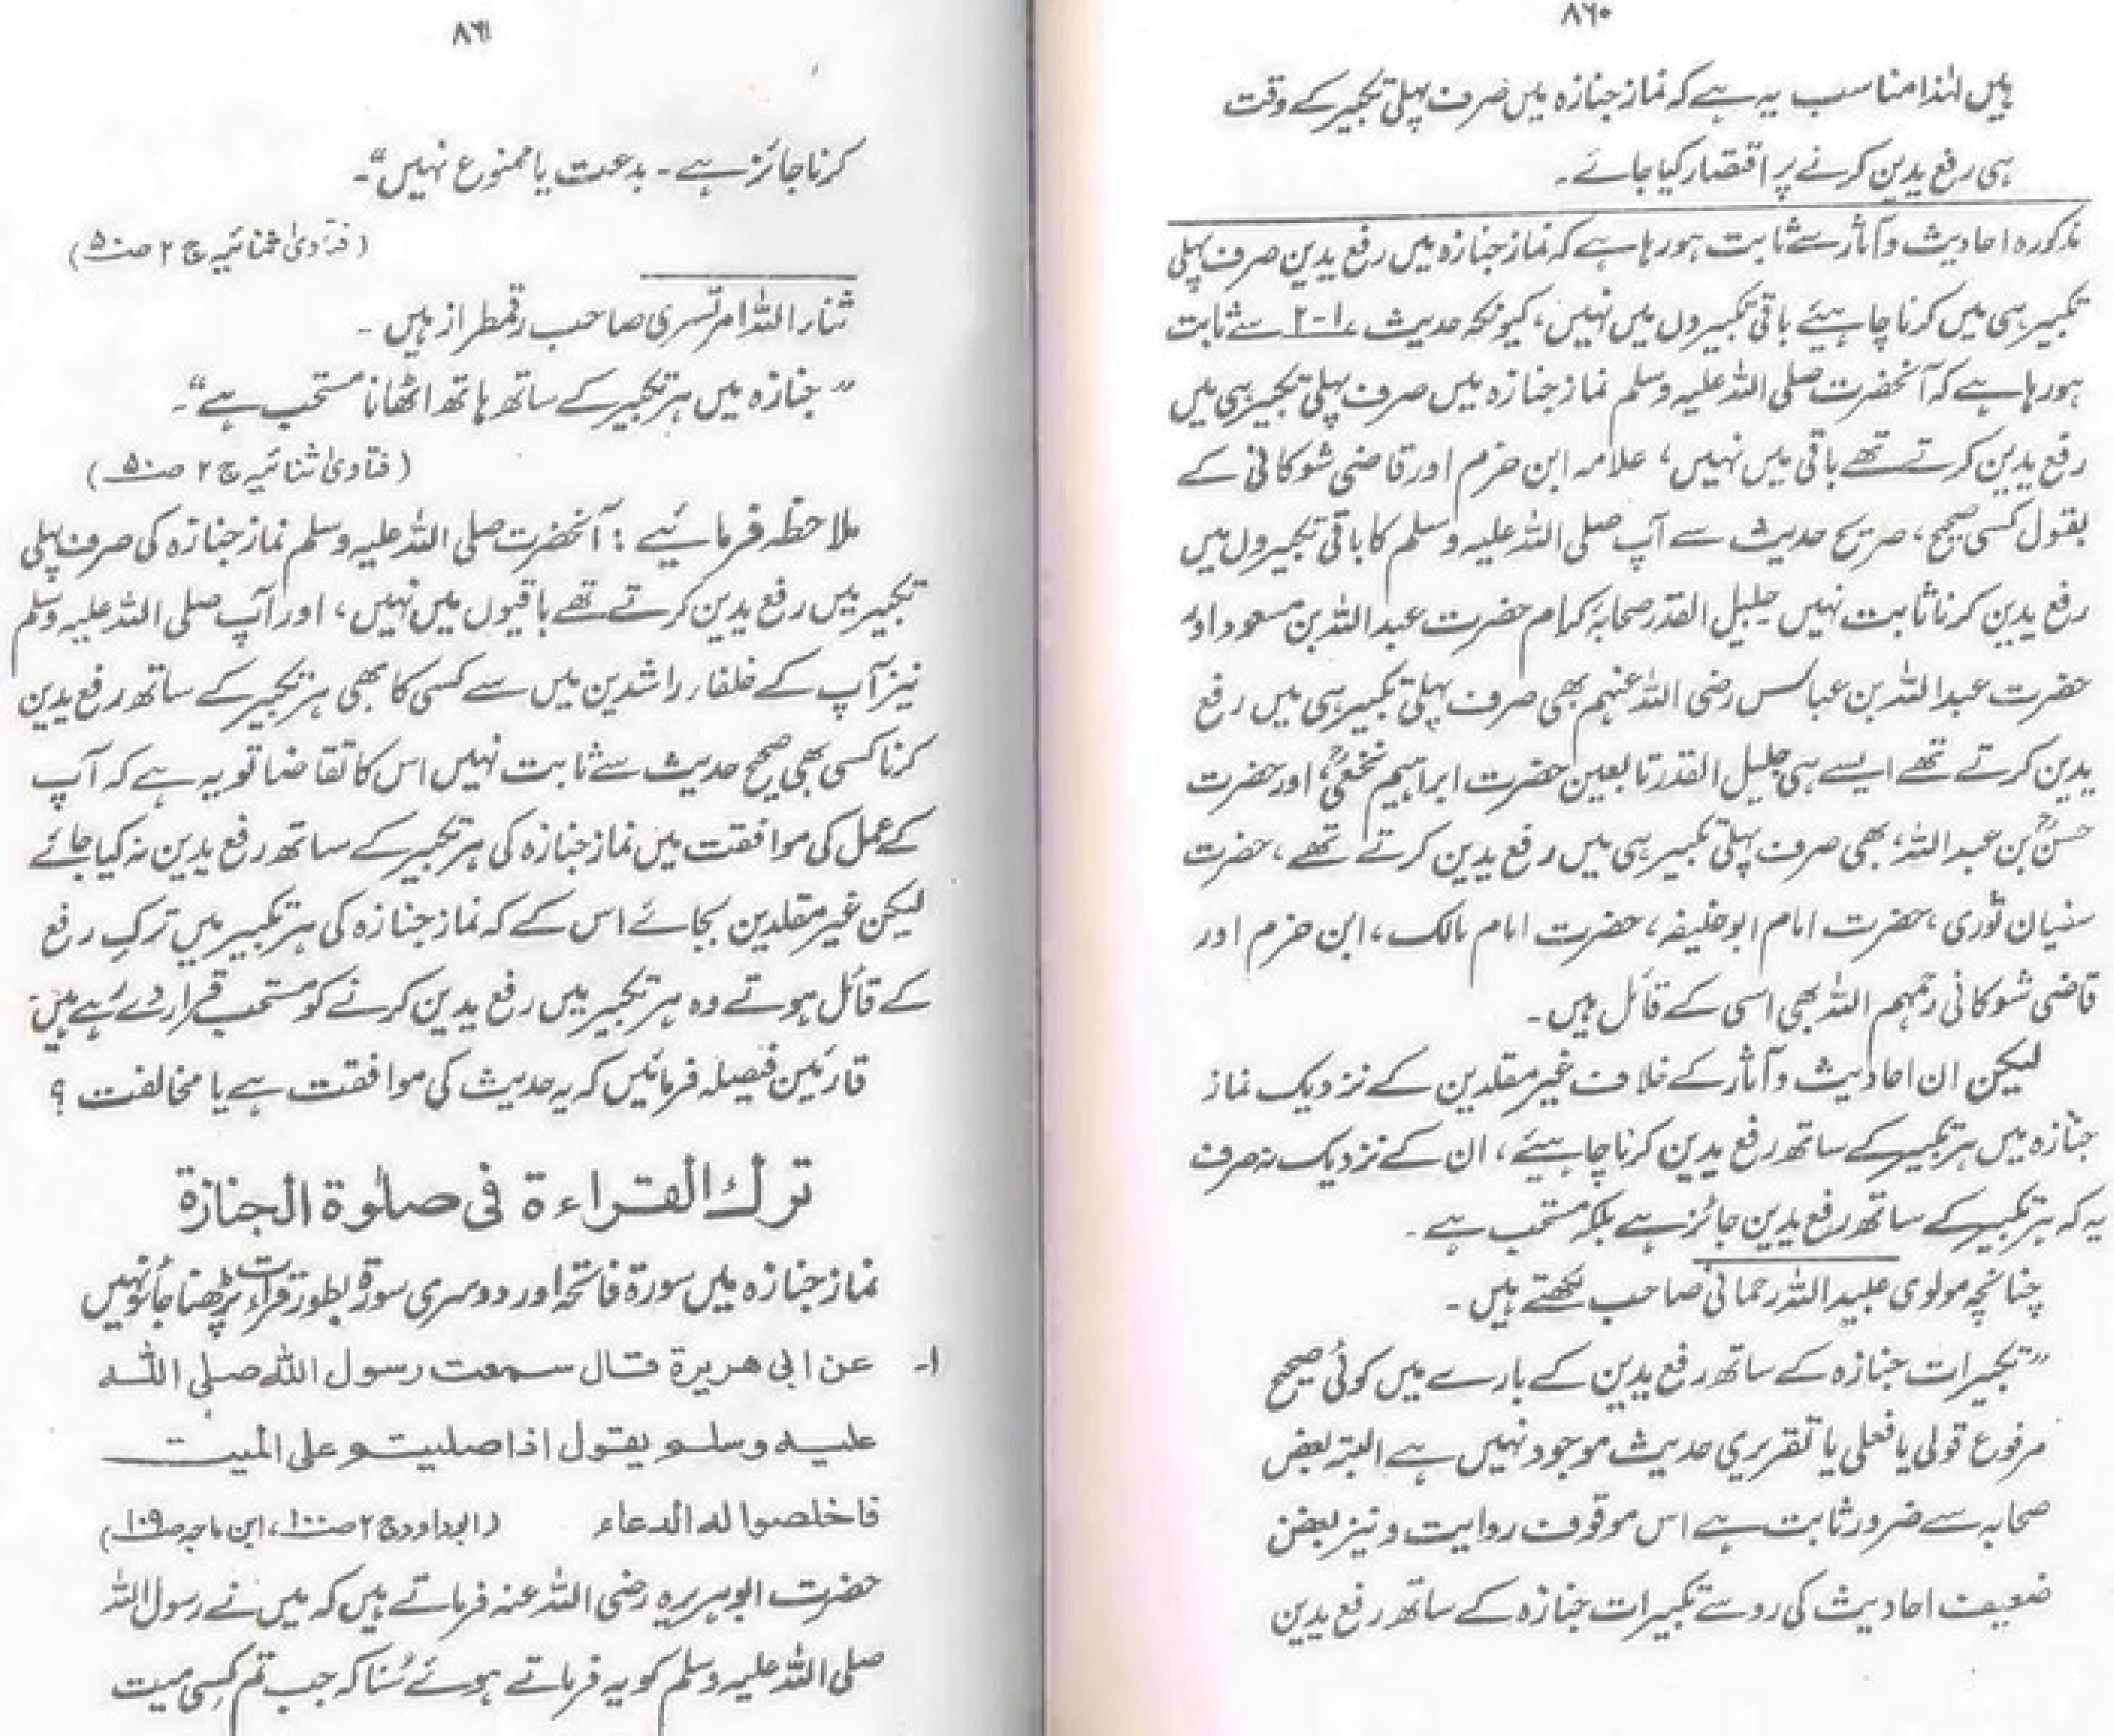 ٨٦٠
ہیں لہٰذا مناسب یہ ہے کہ نماز جنازہ میں صرف پہلی تکبیر کے وقت
ہی رفع یدین کرنے پر اقتصار کیا جائے۔
مذکورہ احادیث و آثار سے ثابت ہو رہا ہے کہ نماز جنازہ میں رفع یدین صرف پہلی
تکبیر ہی میں کرنا چاہیئے باقی تکبیروں میں نہیں، کیونکہ حدیث ۱-۲ سے ثابت
ہو رہا ہے کہ آنحضرت صلی اللہ علیہ وسلم نماز جنازہ میں صرف پہلی تکبیر ہی میں
رفع یدین کرتے تھے باقی میں نہیں، علامہ ابن حزم اور قاضی شوکانی کے
بقول کسی صحیح، صریح حدیث سے آپ صلی اللہ علیہ وسلم کا باقی تکبیروں میں
رفع یدین کرنا ثابت نہیں جلیل القدر صحابۂ کرام حضرت عبداللہ بن مسعود اور
حضرت عبداللہ بن عباس رضی اللہ عنہم بھی صرف پہلی تکبیر ہی میں رفع
یدین کرتے تھے ایسے ہی جلیل القدر تابعین حضرت ابراہیم نخعیؒ، اور حضرت
حسنؒ بن عبداللہ، بھی صرف پہلی تکبیر ہی میں رفع یدین کرتے تھے، حضرت
سفیان ثوری، حضرت امام ابوحنیفہ، حضرت امام مالک، ابن حزم اور
قاضی شوکانی رحمہم اللہ بھی اسی کے قائل ہیں۔
لیکن ان احادیث و آثار کے خلاف غیر مقلدین کے نزدیک نماز
جنازہ میں ہر تکبیر کے ساتھ رفع یدین کرنا چاہیئے، ان کے نزدیک نہ صرف
یہ کہ ہر تکبیر کے ساتھ رفع یدین جائز ہے بلکہ مستحب ہے۔
چنانچہ مولوی عبیداللہ رحمانی صاحب لکھتے ہیں۔
”تکبیرات جنازہ کے ساتھ رفع یدین کے بارے میں کوئی صحیح
مرفوع قولی یا فعلی یا تقریری حدیث موجود نہیں ہے البتہ بعض
صحابہ سے ضرور ثابت ہے اس موقوف روایت و نیز بعض
ضعیف احادیث کی رو سے تکبیرات جنازہ کے ساتھ رفع یدین
٨٦١
کرنا جائز ہے۔ بدعت یا ممنوع نہیں“۔
(فتاویٰ ثنائیہ ج ۲ ص ۵۰)
ثناء اللہ امرتسری صاحب رقمطراز ہیں۔
”جنازہ میں ہر تکبیر کے ساتھ ہاتھ اٹھانا مستحب ہے“۔
(فتاویٰ ثنائیہ ج ۲ ص ۵۰)
ملاحظہ فرمائیے : آنحضرت صلی اللہ علیہ وسلم نماز جنازہ کی صرف پہلی
تکبیر میں رفع یدین کرتے تھے باقیوں میں نہیں، اور آپ صلی اللہ علیہ وسلم
نیز آپ کے خلفاء راشدین میں سے کسی کا بھی ہر تکبیر کے ساتھ رفع یدین
کرنا کسی بھی صحیح حدیث سے ثابت نہیں اس کا تقاضا تو یہ ہے کہ آپ
کے عمل کی موافقت میں نماز جنازہ کی ہر تکبیر کے ساتھ رفع یدین نہ کیا جائے
لیکن غیر مقلدین بجائے اس کے کہ نماز جنازہ کی ہر تکبیر میں ترکِ رفع
کے قائل ہوتے وہ ہر تکبیر میں رفع یدین کرنے کو مستحب قرار دے رہے ہیں۔
قارئین فیصلہ فرمائیں کہ یہ حدیث کی موافقت ہے یا مخالفت ؟
ترك القراءة فى صلوٰة الجنازة
نماز جنازہ میں سورۃ فاتحہ اور دوسری سورۃ بطور قراءت پڑھنا جائز نہیں
۱- عن ابى هريرة قال سمعت رسول الله صلى الله
عليه وسلم يقول اذا صليتم على الميت
فاخلصوا له الدعاء (ابوداود ج ۲ ص ۱۰۰، ابن ماجہ ص ۱۰۹)
حضرت ابوہریرہ رضی اللہ عنہ فرماتے ہیں کہ میں نے رسول اللہ
صلی اللہ علیہ وسلم کو یہ فرماتے ہوئے سُنا کہ جب تم کسی میت